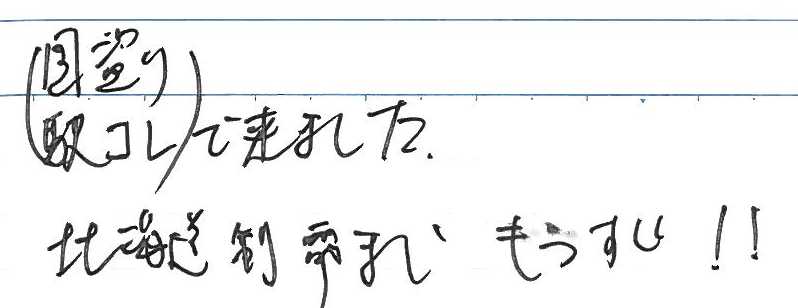 (国盗り
駅コレ)で来ました.
北海道制覇まで もうすぐ!!